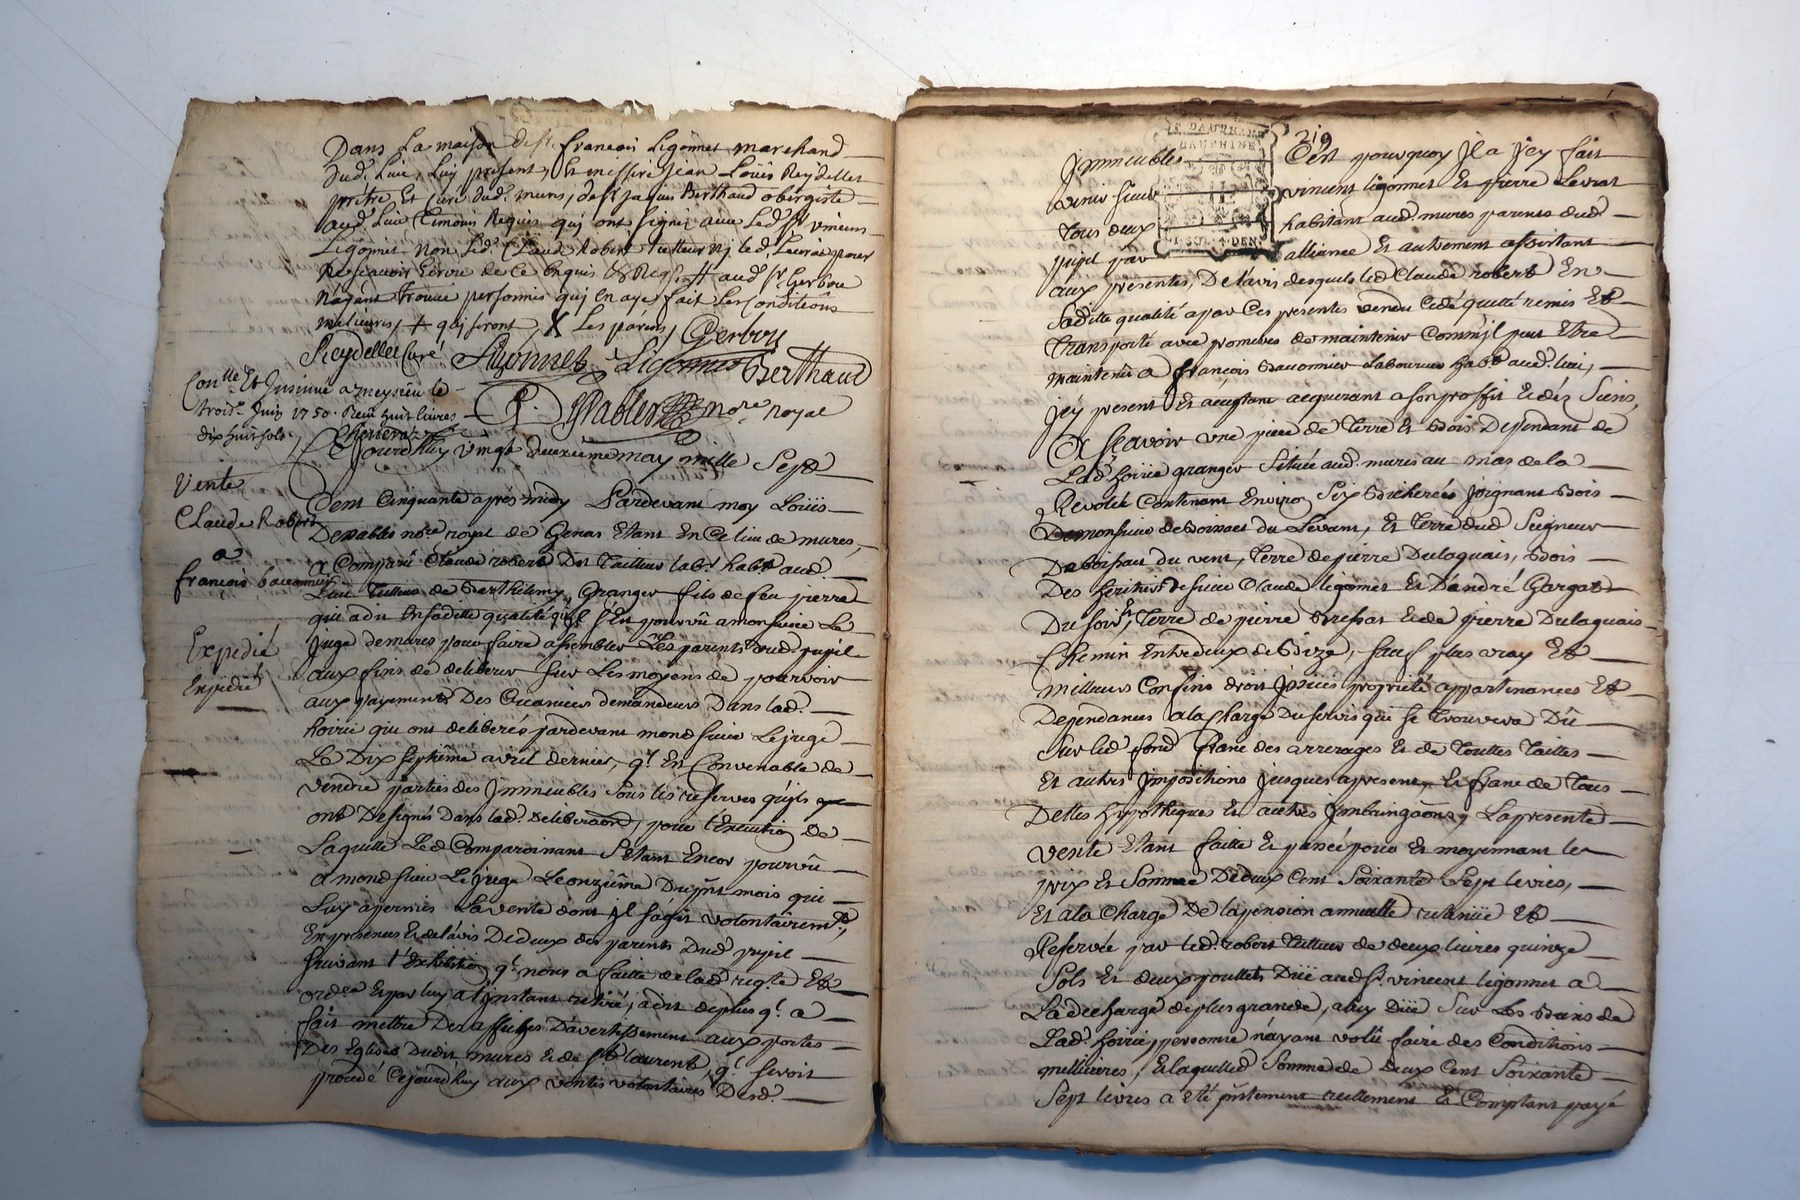 Dans La maison de sr. francois Ligonnet marchand
dud. Lieu, Luy present, Et messire jean Loüis Reydellet
prêtre Et Curé dud. mures, de sr. jaques Berthaud obergiste
aud. Lieu temoins Requis qui ont signes avec Led. sr. vincens
Ligonnet non Led. Claude Robert tutteur Ny led. Levrat pour
ne scavoir Ecrire de Ce Enquis & Requis aud. sr. Gerbou
N'ayant trouvé personnes qui en aye fait Les Conditions
melieures, + qui seront, X Les parens, Gerbou
Reydellet Curé Ligonnet Ligonnet Berthaud
Conlle Et Insinué a meysieu le
trois.e Juin 1750. Reçu huit livres
dix huit sols.
Desrables Nore. royal
Cejourdhuy vingt deuxieme may mille Sept
Vente
Claude Robert
a
francois bavonnier
Expedié
Expedié
Cent Cinquante apres midy Pardevant moy Loüis
Desrables nore. royal de Genas Etant En Ce lieu de mures,
a Comparu Claude robert Dit Tailleur lab.r habt. aud.
Lieu Tutteur de Barthelemy Granger fils de feu pierre
qui a dit En sa ditte qualité qu'il s'Est pourvû a monsieur Le
juge de mures pour faire assembler Les parents dud. pupil
aux fins de deliberer sur Les moyens de pourvoir
aux payements Des Creanciers demandeurs Dans lad.
hoirie qui ont deliberés pardevant mond. sieur Le juge
Le Dix septiême avril dernier, q'. En Convenable de
vendre parties des Jmmeubles sous les reserves qu'ils
ont Designés Dans lad. Deliberaõn, pour l'Execution de
Laquelle Led. Comparoissant S'etant Encor pourvû
a mond. sieur Le juge Le onziême Du pnt. mois qui
Luy a permis La vente dont jl s'agit volontairemt.,
En presence & de l'avis De deux des parents Dud. pupil
suivant l'Exhibition q'. nous a faitte de lad. reqte. Et
ordce. Et par luy a l'jnstant retiré, a dit de plus q'. a
fait mettre Des affiches D'avertissement aux portes
Des Eglises Dudit mures & de St. laurent, q'. seroit
procedé Cejourd'huy aux ventes volontaires Desd.
219
Jmmeubles C'est pourquoy jl a jcy fait
venir sieur vincent ligonnet Et pierre Levrat
Tous deux habitant aud. mures parents dud.
pupil par alliance Et autrement assistant
aux presentes, De l'avis desquels led. Claude robert En
sa ditte qualité a par Ces presentes vendu Cedé quitté remis Et
Transporté avec promesses de maintenir Comm'jl peut Etre
maintenu a françois Bavonnier Laboureur habt. aud. lieu,
jcy present Et acceptant acquerant a son proffit & des Siens,
A Scavoir une piece de Terre Et Bois Dependant de
Lad. hoirie granger Située aud. mures au mas de la
Revolet Contenant Environ Six Bicherées Joignant Bois
De monsieur de Boissac du Levant, Et Terre dud. Seigneur
De boissac du vent, Terre de pierre Dulaquais, Bois
Des heritiers De sieur Claude ligonnet Et D'andré Gargat
Du soir, Et Terre de pierre Bressat & de pierre Dulaquais
Chemin Entredeux de Bize, sauf plus vray Et
meilleurs Confins droit Jssües proprieté appartenances Et
Dependances a la Charge Du servis qui se trouvera Dû
Sur led. fond franc des arrerages & de Touttes Tailles
Et autres Jmpositions jusques a present, & franc de Tous
Dettes hypotheques Et autres Jmbringaõns, La presente
vente Etant faitte Et passée pour Et moyennant le
prix Et Somme De deux Cent Soixante Sept livres,
Et a la Charge De la pension annuelle retenüe Et
Reservée par led. robert Tutteur de deux livres quinze
Sols Et deux poullets Düe aud. sr. vincent ligonnet a
La decharge de plus grande, a luy Düe Sur Les Biens de
Lad. hoirie, personne n'ayant volû faire des Conditions
meilleures, & laquelle Somme de deux Cent Soixante
Sept livres a été pntement reellement & Comptant payé